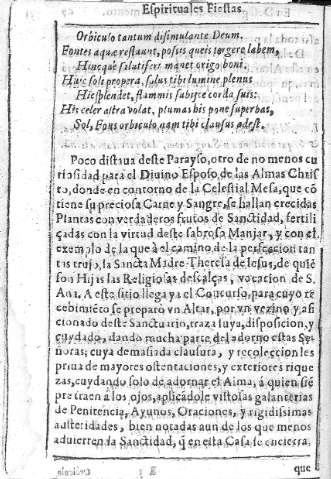 Espirituales Fiestas.
Orbiculo tantum disimulante Deum.
Fontes aquæ restaunt, possis queis tergere labem,
Hincque salutiferi manet origo boni.
Huic soli propera, salus tibi lumine plenus
Hic splendet, flammis subijce corda suis:
Hic celer astra volat, plumas his pone superbas,
Sol, Fons orbiculo nam tibi clausus adest.
Poco distaua deste Parayso, otro de no menos cu
riosidad para el Diuino Esposo de las Almas Chris
to, donde en contorno de la Celestial Mesa, que cõ
tiene su preciosa Carne y Sangre, se hallan crecidas
Plantas con verdaderos frutos de Sanctidad, fertili
çadas con la virtud deste sabrosa Manjar, y con el
exemplo de la que à el camino de la perfeccion tan
tas trujo, la Sancta Madre Theresa de Iesus, de quiē
son Hijas las Religiosas descalças, vocacion de S.
Ana. A este sitio llega ya el Concurso, para cuyo re
cebimiēto se preparò vn Altar, por vn vezino y afi
cionado deste Sanctuario, traza luya, disposicion, y
cuydado, dando mucha parte del adorno estas Se-
ñoras; cuya demasiada clausura, y recoleccion les
priua de mayores ostentaciones, y exteriores rique
zas, cuydando solo de adornar el Alma, á quien siē
pre traen a los ojos, aplicãdole vistosas galanterias
de Penitencia, Ayunos, Oraciones, y rigidissimas
austeridades, bien notadas aun de los que menos
aduierten la Sanctidad, q̃ en esta Casa se encierra.
que